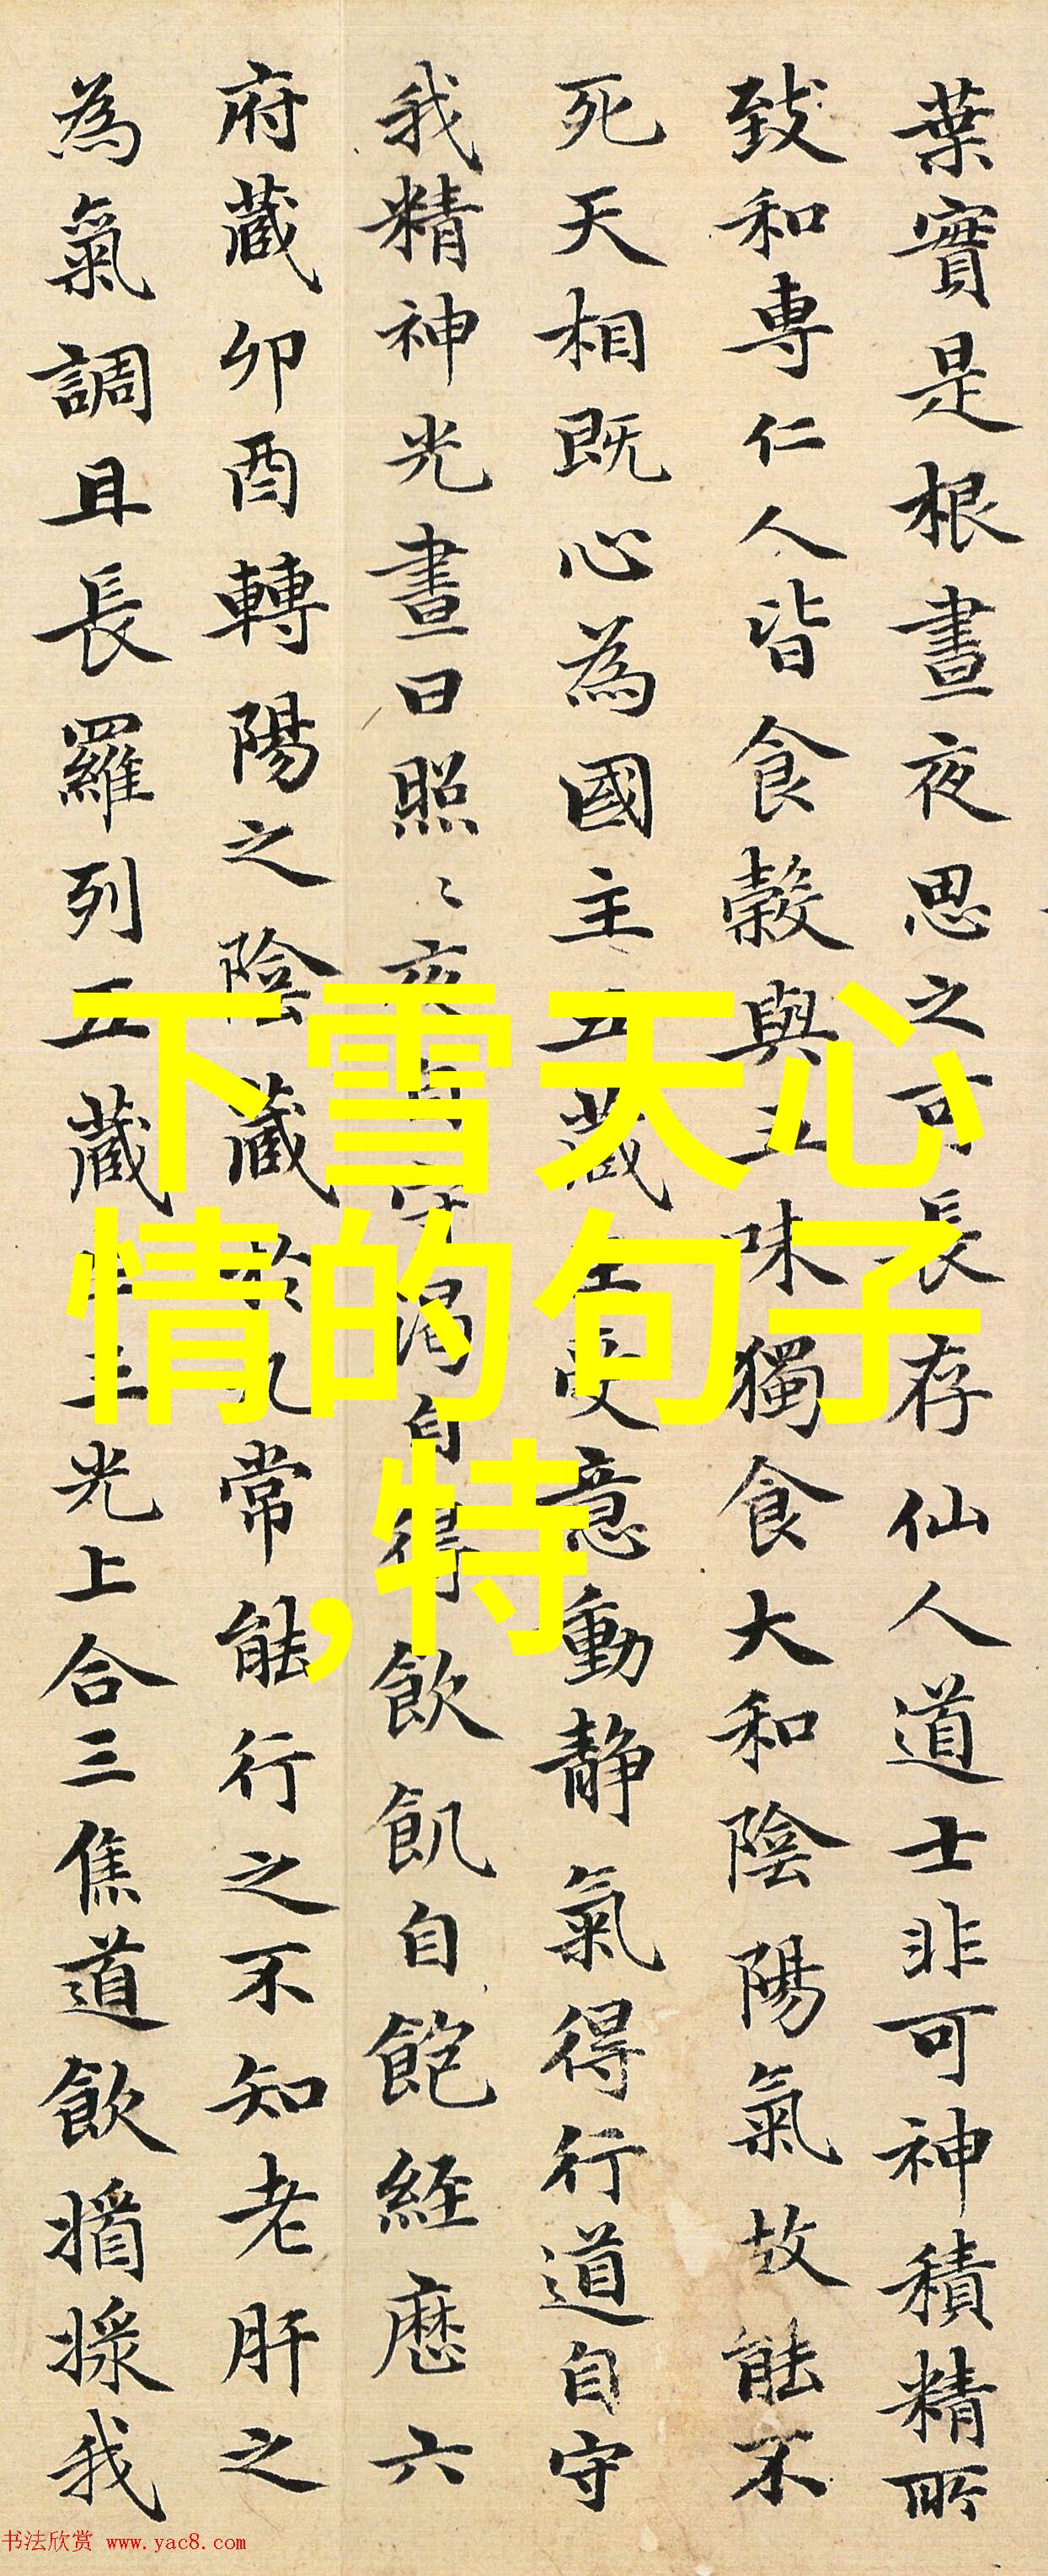 葉實是根晝夜思之可長存仙人道士非可神積精所
致和專仁人皆食穀與五味獨食大和陰陽氣故能不
死天相既心為國主五藏王受意動静氣得行道自守
我精神光晝日照〻夜自守渴自得飲飢自飽經歷六
府藏卯酉轉陽之陰藏於九常能行之不知老肝之
為氣調且長羅列五藏生三光上合三焦道飲揗㨿我
下雪天心
情的句子
,特
书法欣赏 www.yac8.com